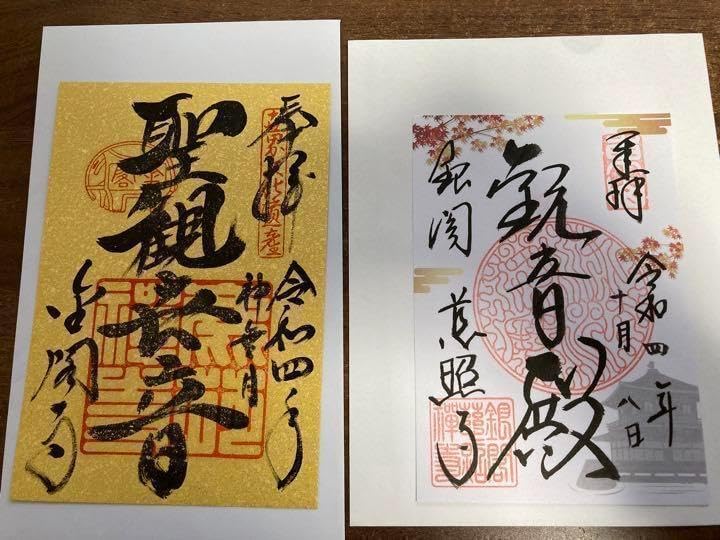 奉拝
令和四年
神無月
聖観世音
金閣寺
奉拝
令和四年
十月八日
観音殿
銀閣 慈照寺
銀閣
慈照
禅寺